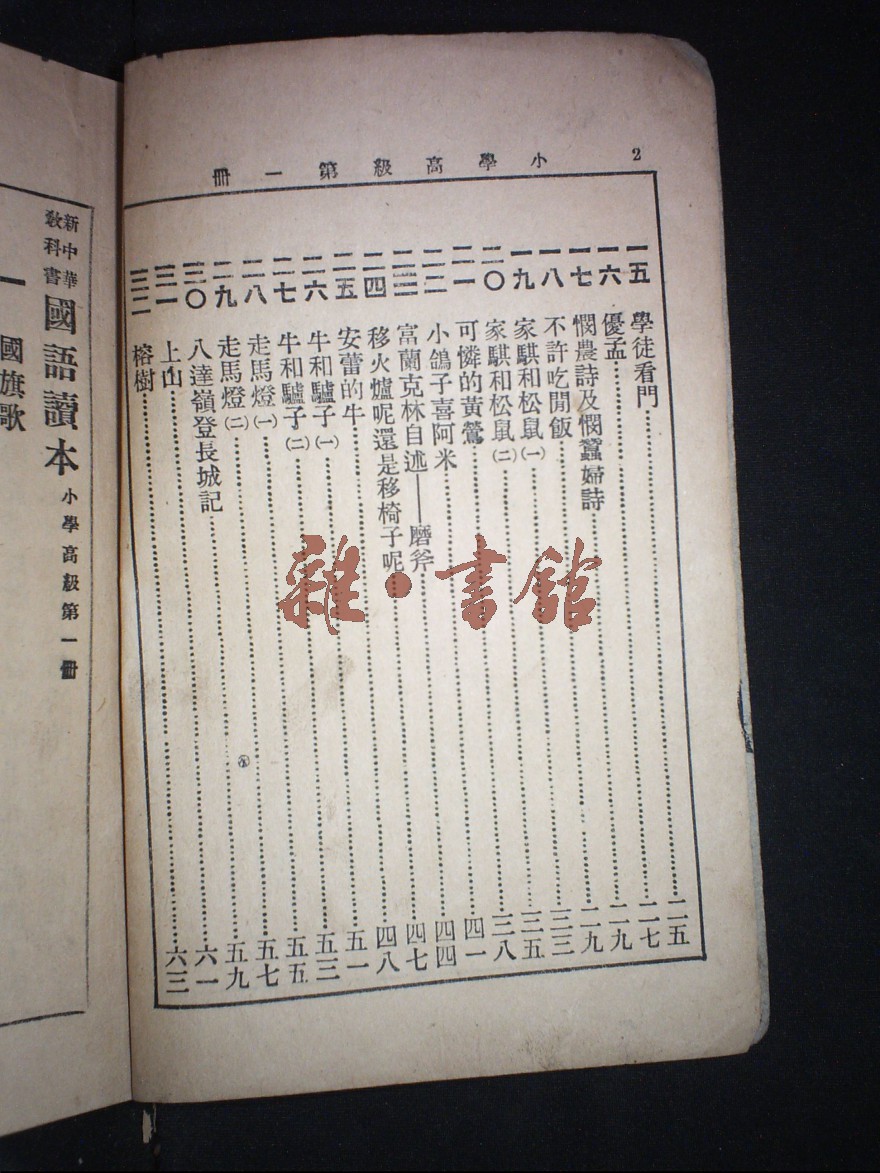 2
小學高級第一冊
一五 學徒看門……二五
一六 優孟……二七
一七 憫農詩及憫蠶婦詩……二九
一八 不許吃閒飯……二九
一九 家騏和松鼠(一)……三三
二〇 家騏和松鼠(二)……三五
二一 可憐的黃鶯……三八
二二 小鴿子喜阿米……四一
二三 富蘭克林自述——磨斧……四四
二四 移火爐呢還是移椅子呢……四七
二五 安蕾的牛……四八
二六 牛和驢子(一)……五一
二七 牛和驢子(二)……五三
二八 走馬燈(一)……五五
二九 走馬燈(二)……五七
三〇 八達嶺登長城記……五九
三一 上山……六一
三二 榕樹……六三
新中華教科書 國語讀本 小學高級第一冊
一 國旗歌
雜·書館